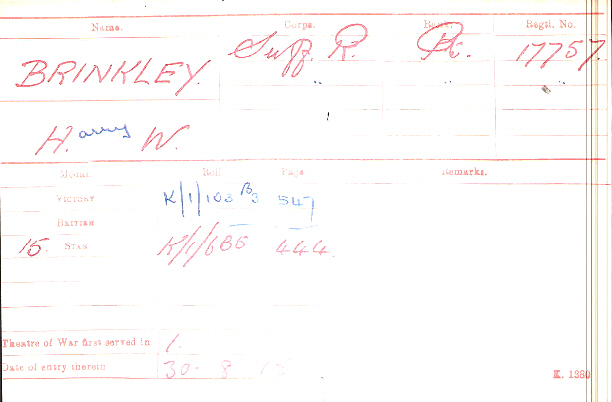 Name. Corps. Rank. Regtl. No.
BRINKLEY. Suff. R. Pte. 17757.
" "
Harry W.
Medal. Roll Page Remarks.
VICTORY K/1/103 B3 547
BRITISH
15. STAR K/1/6B5 444.
Theatre of War first served in 1.
Date of entry therein 30-8-15
K. 1380